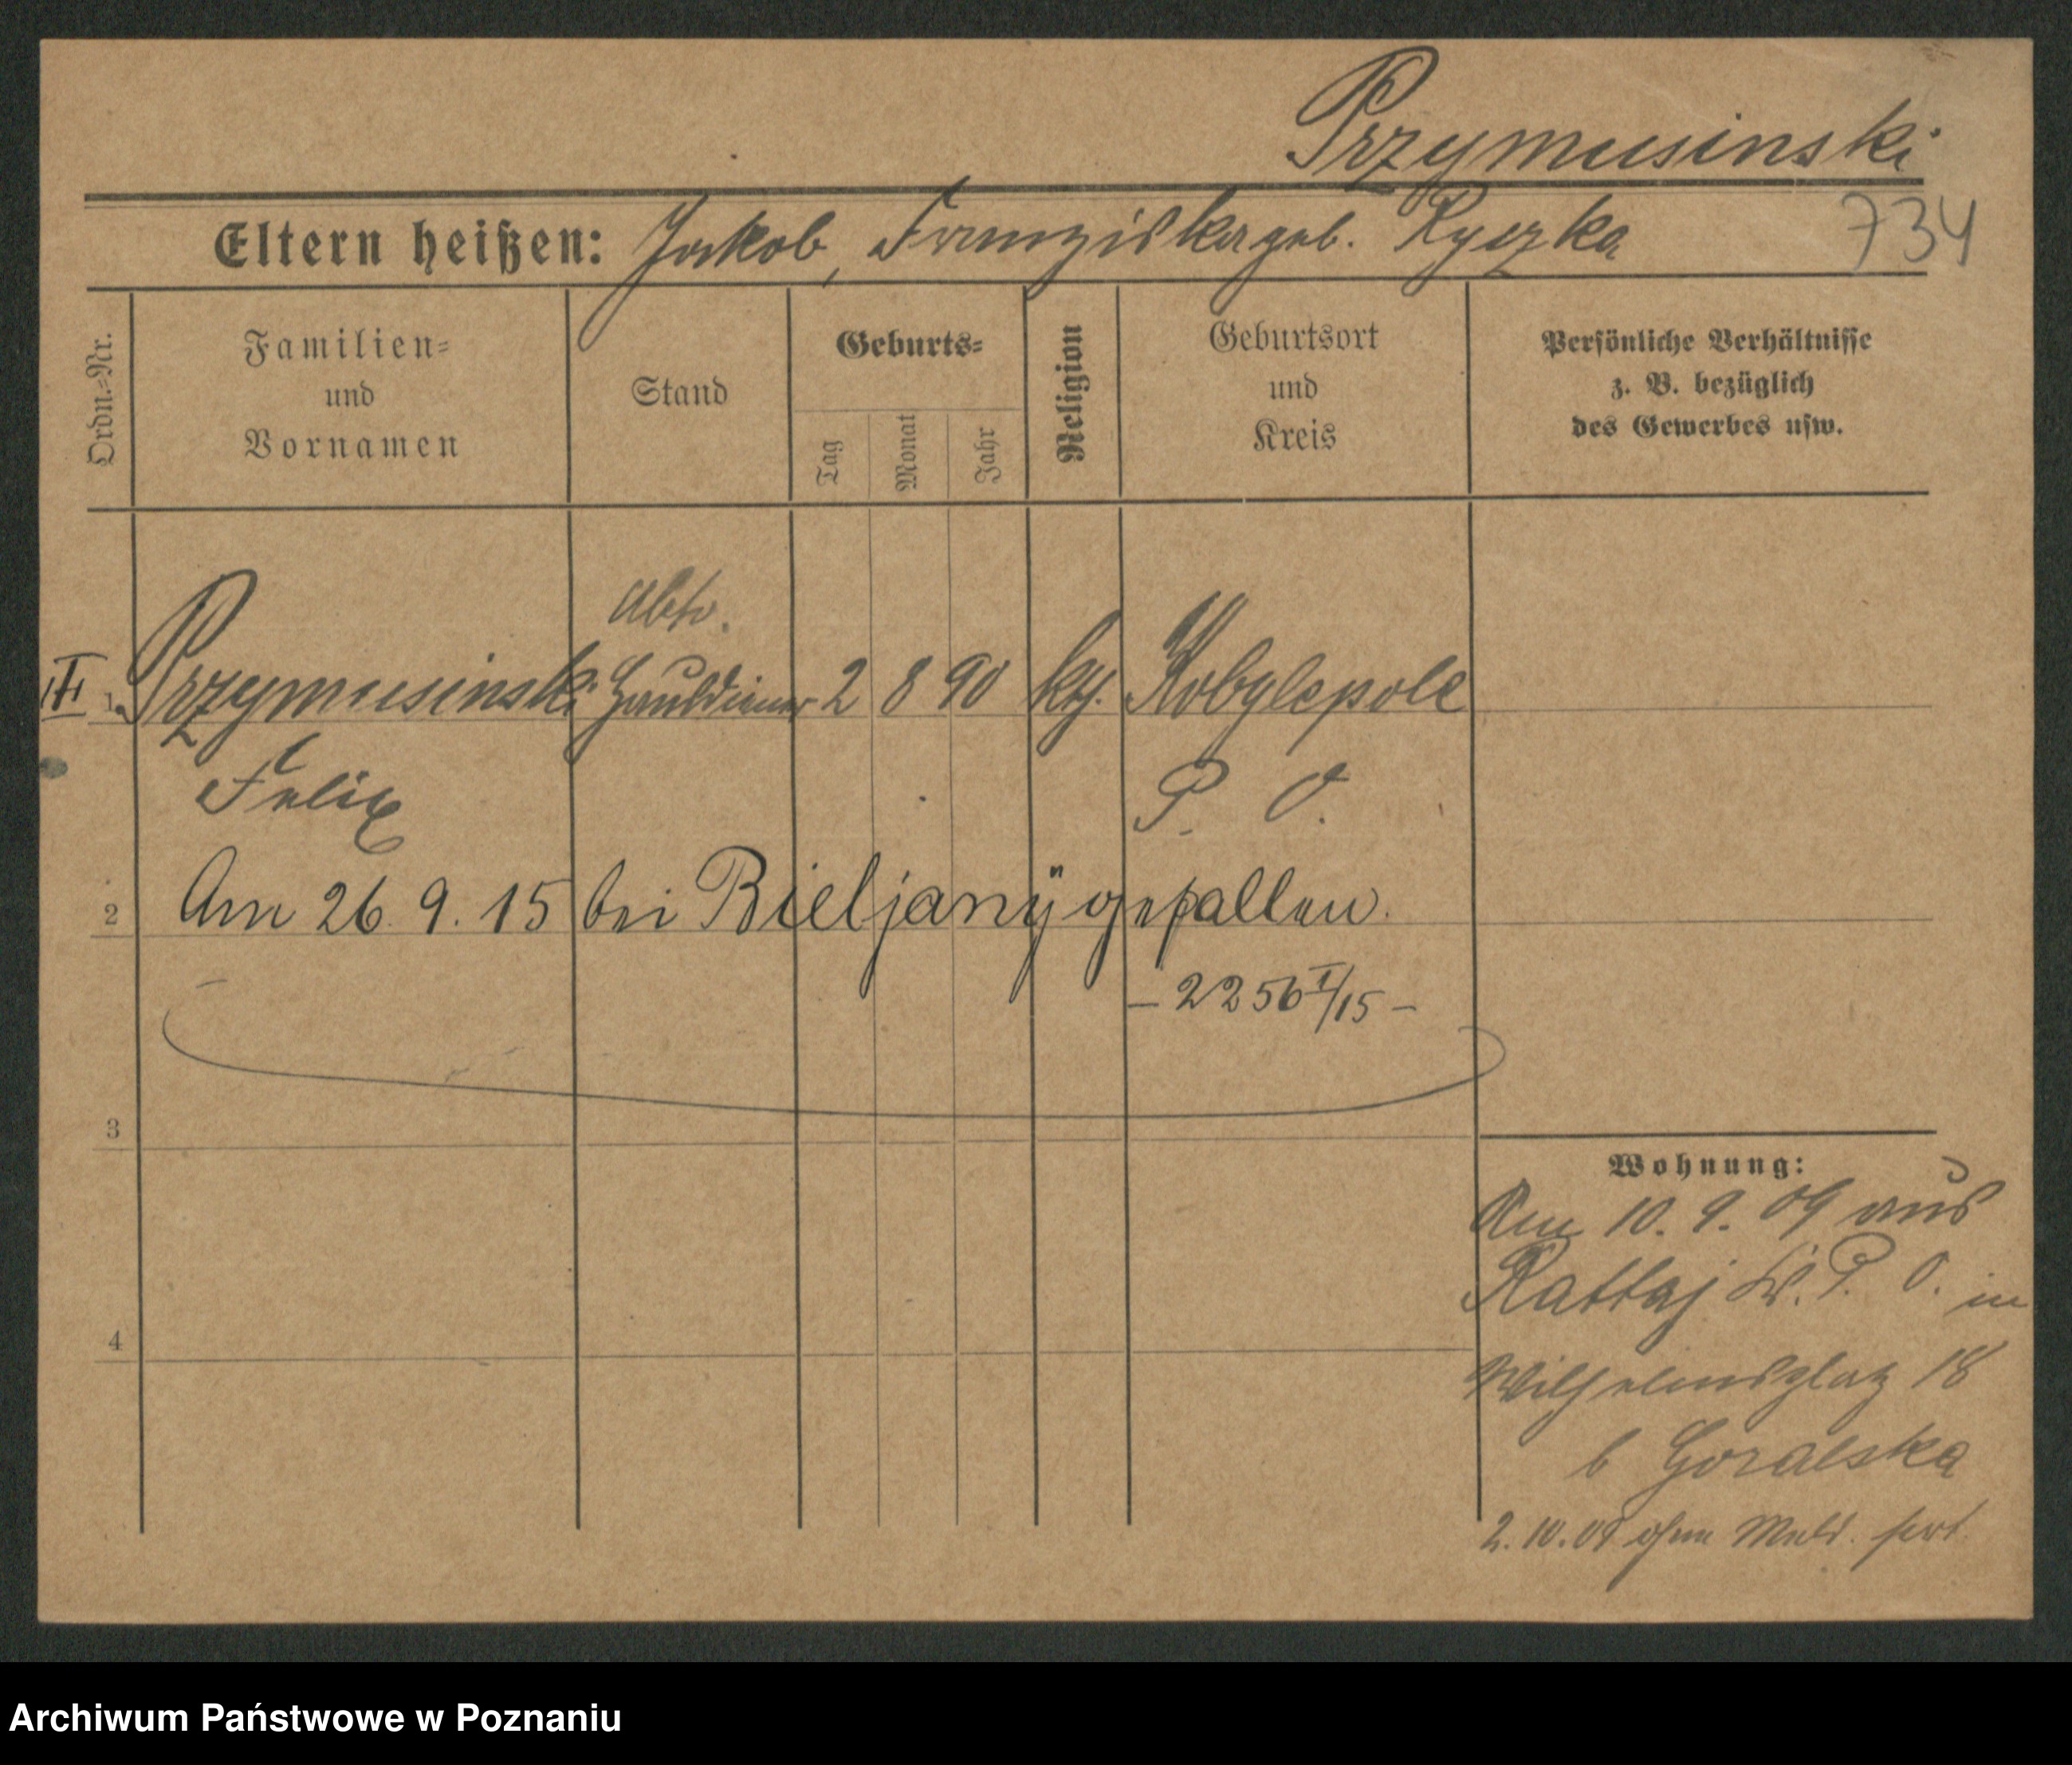 Przymusinski
Eltern heißen: Jakob, Franziska geb. Ryczka 734
Ordn.-Nr.
Familien-
und
Vornamen
Stand
Geburts-
Tag
Monat
Jahr
Religion
Geburtsort
und
Kreis
Persönliche Verhältnisse
z. B. bezüglich
des Gewerbes usw.
1 Przymusinski Hausdiener 2 8 90 kth. Kobylepole
Felix P. O.
2 Am 26. 9. 15 bei Bieljanÿ gefallen.
– 2256 I/15 –
3
4
Wohnung:
Am 10. 9. 09 aus
Rattaj Kr. P. O. in
Wilhelmsplatz 18
b Goralska
2. 10. 09 ohne Meld. fort.
Archiwum Państwowe w Poznaniu